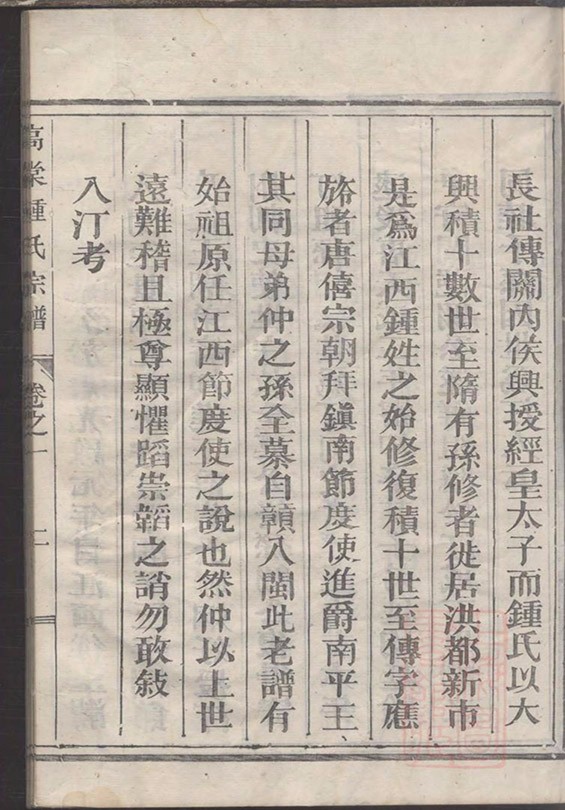 長社傳關內侯興授經皇太子而鍾氏以大
興積十數世至隋有孫修者徙居洪都新市
是爲江西鍾姓之始修復積十世至傳字應
旂者唐僖宗朝拜鎮南節度使進爵南平王
其同母弟仲之孫全慕自贛入閩此老譜有
始祖原任江西節度使之說也然仲以上世
遠難稽且極尊顯懼蹈崇韜之誚勿敢敍
入汀考
高棠鍾氏宗譜 卷之一 二